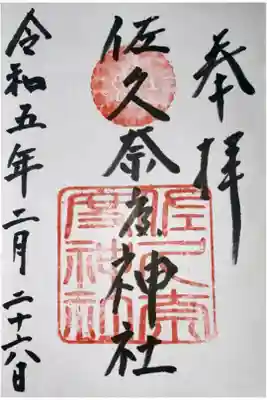 奉拝
佐久奈度神社
令和五年二月二十六日
佐久奈度神社